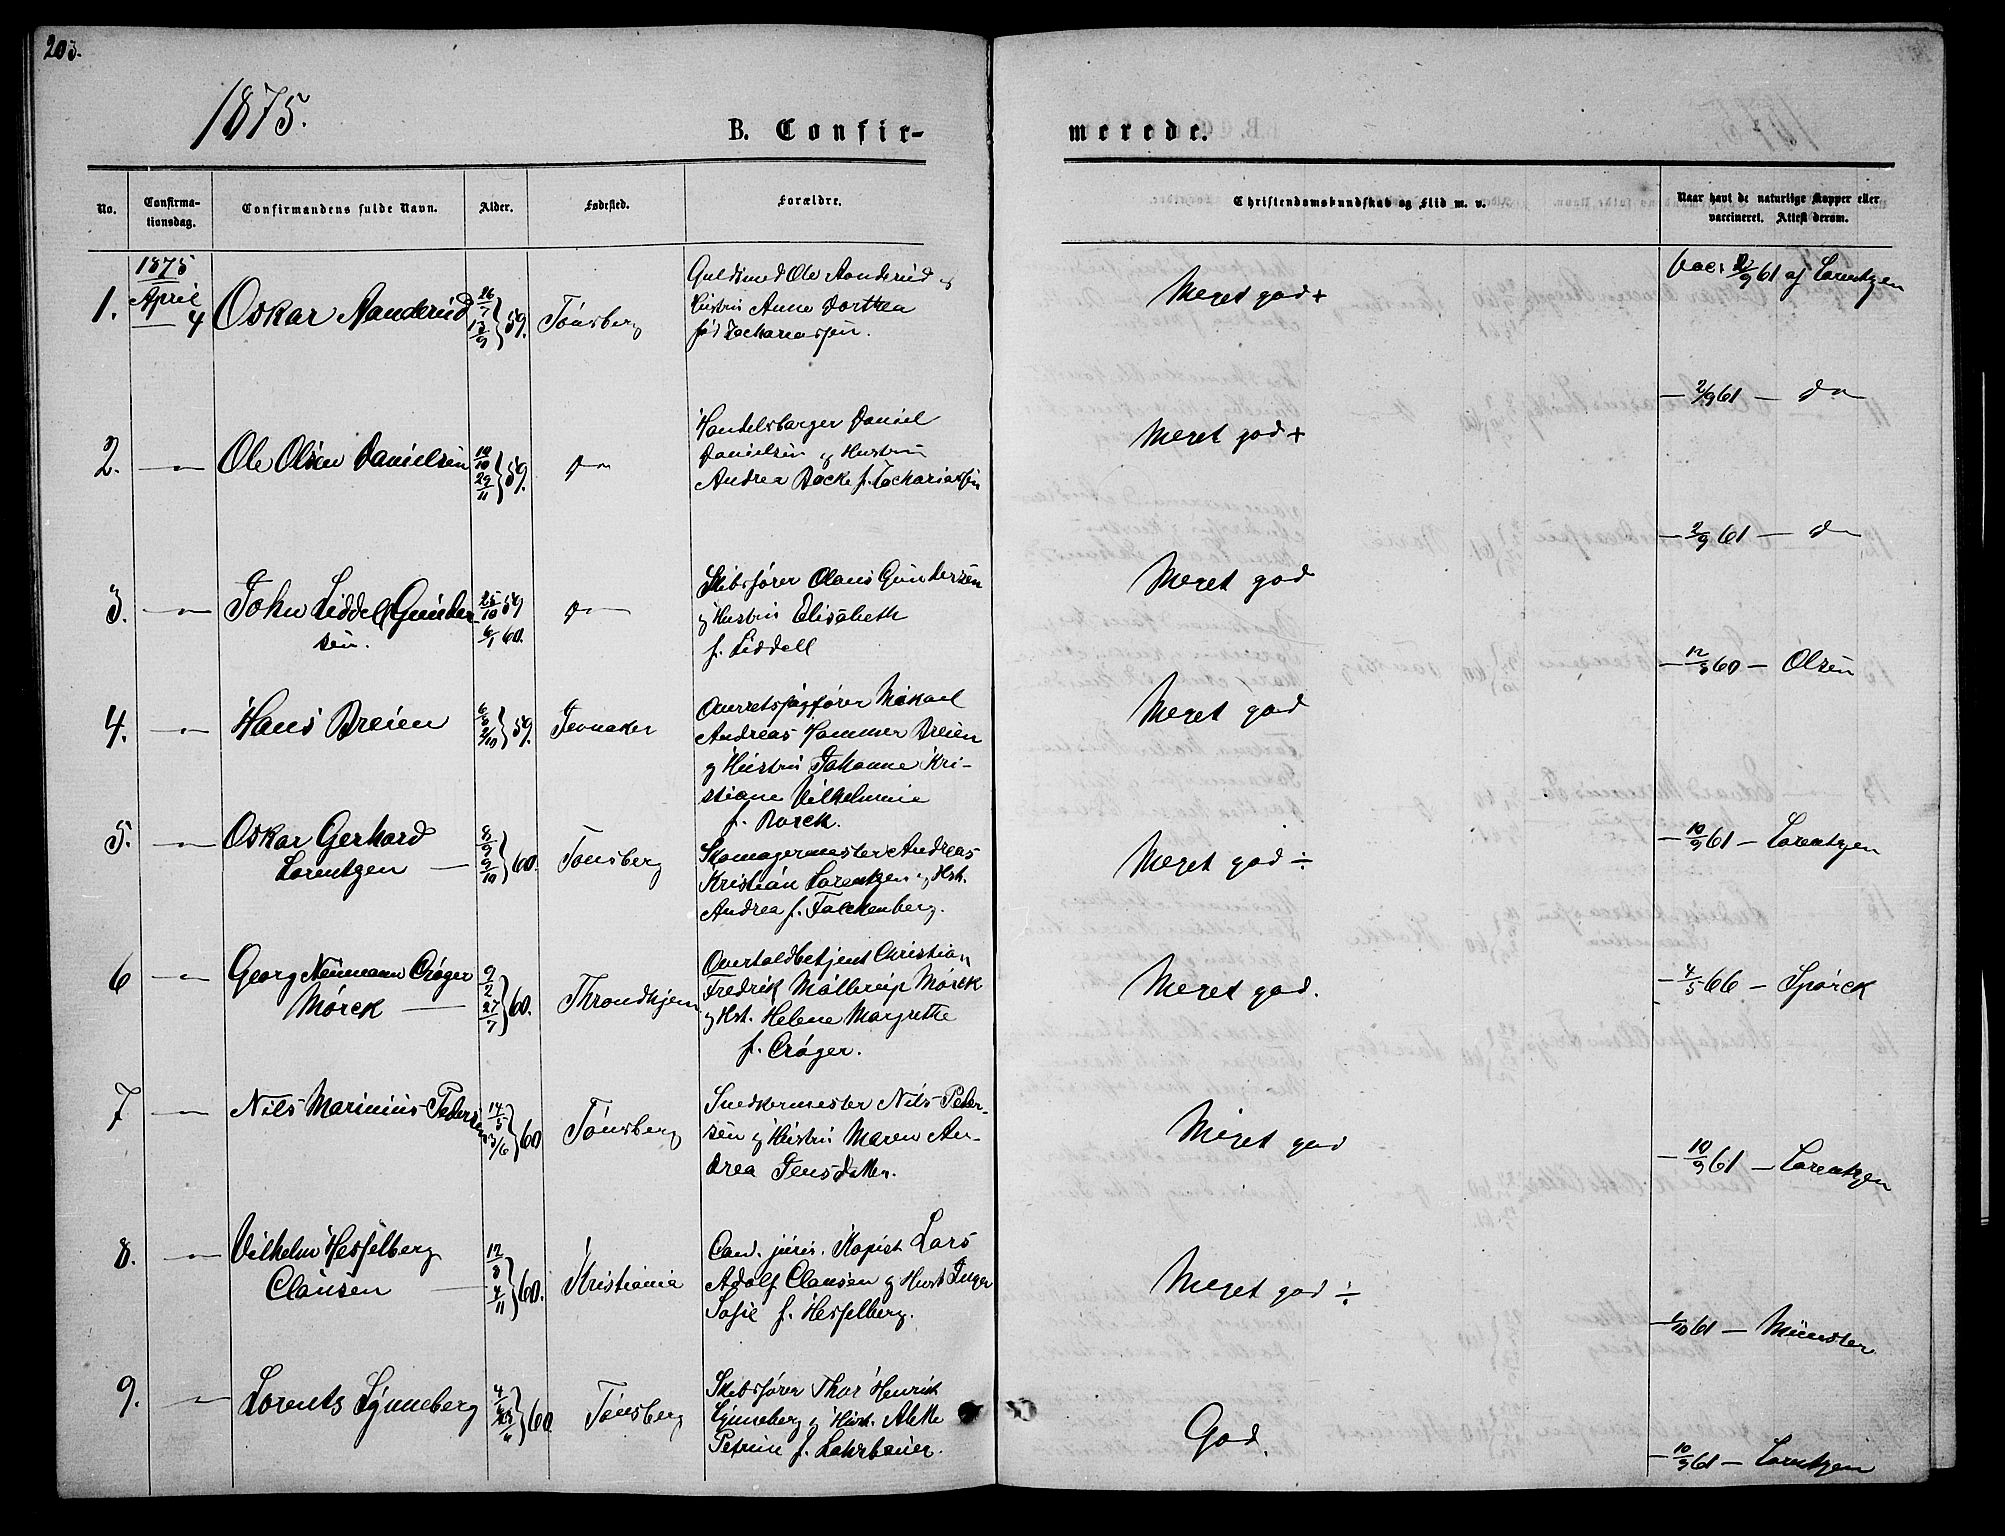 203.
1875.
B. Confirmerede.
No.
Confirmationsdag.
Confirmandens fulde Navn.
Alder.
Fødested.
Forældre.
Christendomskundskab og Flid m. v.
Naar havt de naturlige Kopper eller
vaccineret. Attest derom.
1875
April
1. 4 Oskar Aanderud 26/7 13/9 } 59. Tönsberg
Guldsmed Ole Aanderud og
Hustru Anne Dorthea
fød Zachariassen.
Meget god +
vac. 2/9 61 af Lorentzen
2. — " — Ole Olsen Danielsen 10/10 29/11 } 59. do
Handelsborger Daniel
Danielsen og Hustru
Andrea Backe f. Zachariassen
Meget god +
— 2/9 61 — do
3. — " — John Liddell Gunder
sen. 25/10 59 6/1 60. do
Skibsfører Olaus Gundersen
og Hustru Elisabeth
f. Liddell
Meget god
— 2/9 61 — do
4. — " — Hans Breien 2/10 } 59. Jevnaker
Overretssagfører Mikael
Andreas Hammer Breien
og Hustru Johanne Kri-
stiane Vilhelmine
f. Borck.
Meget god
— 12/8 60 — Olsen
5. — " — Oskar Gerhard
Lorentzen — 8/9 9/10 } 60. Tönsberg
Skomagermester Andreas
Kristian Lorentzen og Hst.
Andrea f. Falckenberg.
Meget god ÷
— 10/9 61 — Lorentzen
6 — " — Georg Neumann Crøger
Mørck — 9/2 27/7 } 60. Throndhjem
Overtoldbetjent Christian
Fredrik Møllerup Mørck
og Hst. Helene Margrethe
f. Crøger.
Meget god.
— 4/5 66 — Spörck
7 — " — Nils Marinius Pedersen 14/5 /6 } 60 Tönsberg
Snedkermester Nils Peder-
sen og Hustru Maren An-
drea Jensdatter.
Meget god
— 10/9 61 — Lorentzen
8. — " — Vilhelm Hesselberg
Clausen — 12/8 4/11 } 60. Kristiania
Cand. juris. Kopist Lars
Adolf Clausen og Hust. Inger
Sofie f. Hesselberg.
Meget god ÷
— /10 61 — Münster
9. — " — Lorents Lynneberg } 60. Tönsberg
Skibsfører Thor Henrik
Lynneberg og Hust. Alette
Petrine f. Lahrbauer.
God.
— 10/9 61 — Lorentzen